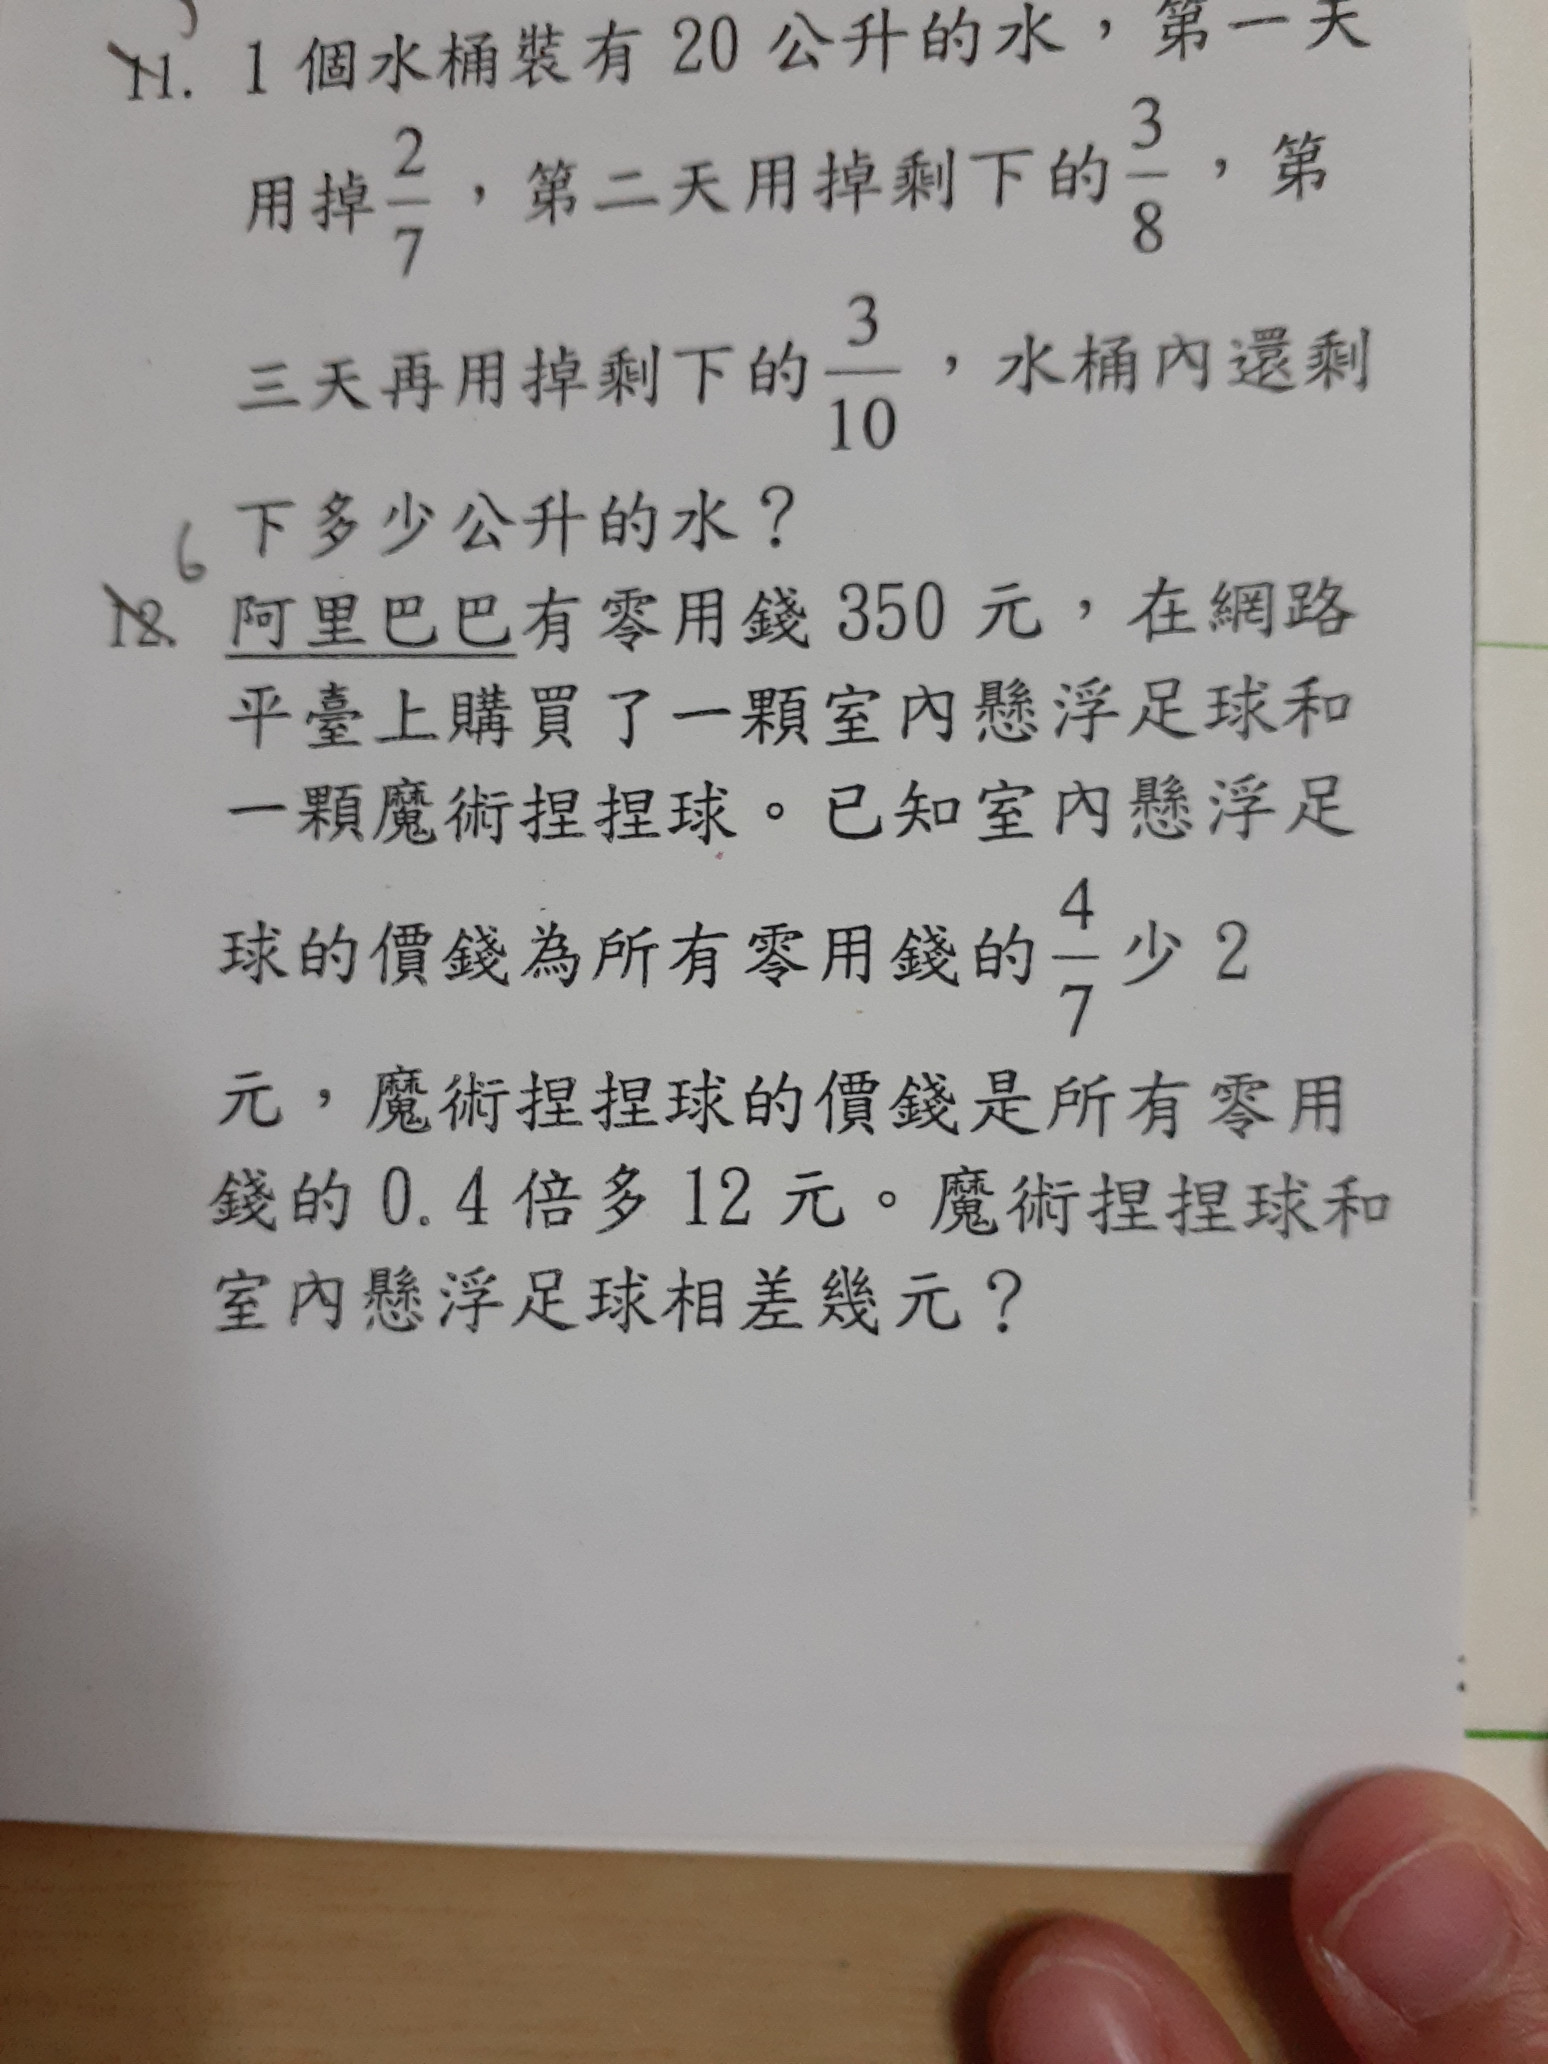 11. 1個水桶裝有20公升的水，第一天
用掉2/7，第二天用掉剩下的3/8，第
三天再用掉剩下的3/10，水桶內還剩
下多少公升的水？
6
12. 阿里巴巴有零用錢350元，在網路
平臺上購買了一顆室內懸浮足球和
一顆魔術捏捏球。已知室內懸浮足
球的價錢為所有零用錢的4/7少2
元，魔術捏捏球的價錢是所有零用
錢的0.4倍多12元。魔術捏捏球和
室內懸浮足球相差幾元？